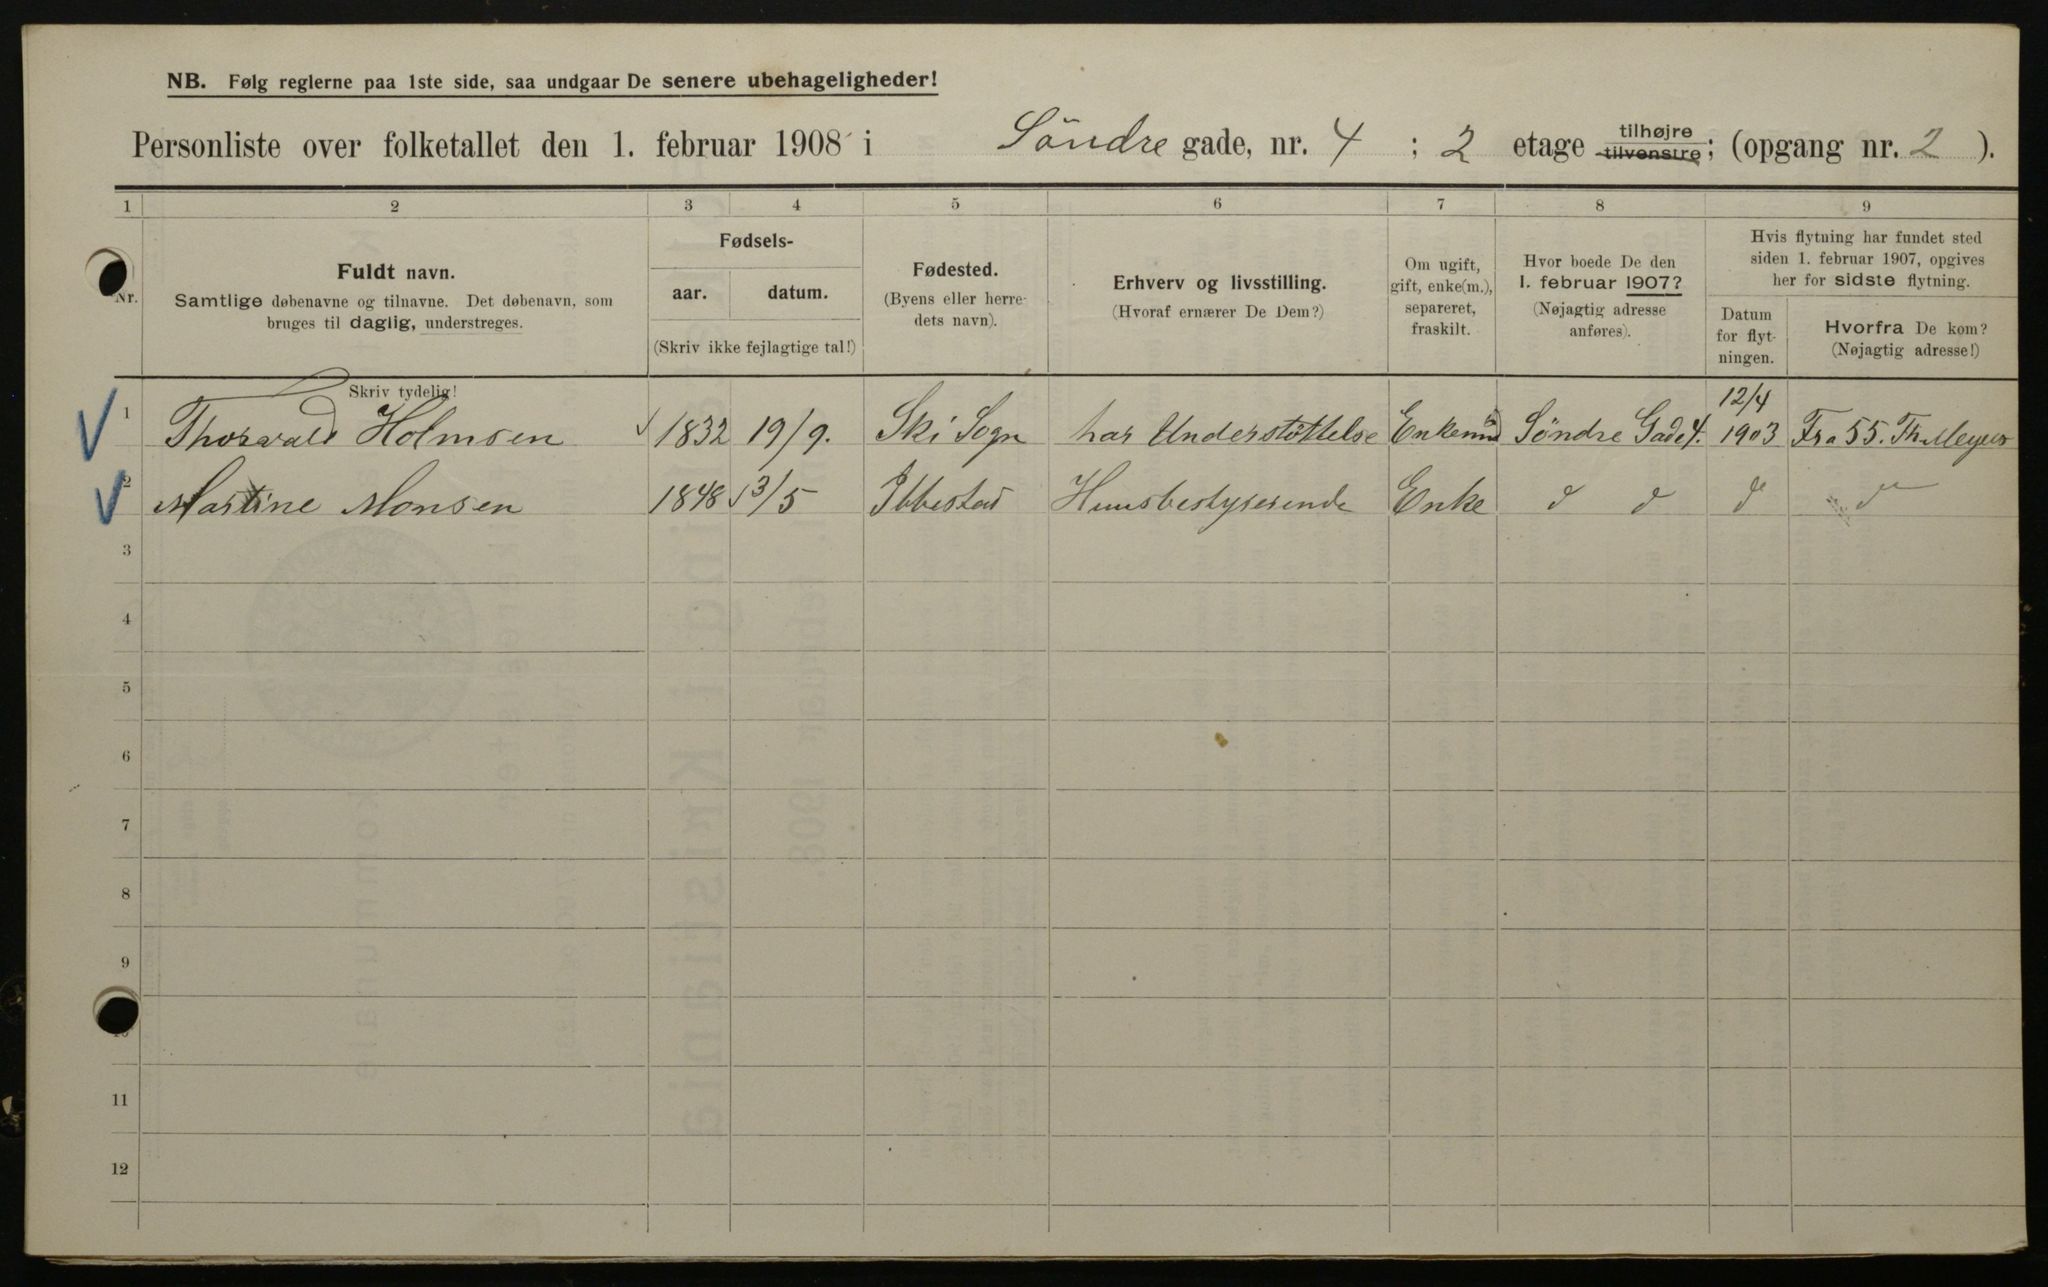 NB. Følg reglerne paa 1ste side, saa undgaar De senere ubehageligheder!
Personliste over folketallet den 1. februar 1908 i Söndre gade, nr. 4 ; 2 etage tilhøjre tilvenstre; (opgang nr. 2 ).
1 2 3 4 5 6 7 8 9
Nr.
Fuldt navn.
Samtlige døbenavne og tilnavne. Det døbenavn, som
bruges til daglig, understreges.
Skriv tydelig!
Fødsels-
aar. datum.
(Skriv ikke fejlagtige tal!)
Fødested.
(Byens eller herre-
dets navn).
Erhverv og livsstilling.
(Hvoraf ernærer De Dem?)
Om ugift,
gift, enke(m.),
separeret,
fraskilt.
Hvor boede De den
1. februar 1907?
(Nøjagtig adresse
anføres).
Hvis flytning har fundet sted
siden 1. februar 1907, opgives
her for sidste flytning.
Datum
for flyt-
ningen.
Hvorfra De kom?
(Nøjagtig adresse!)
1 Thorvald Holmsen 1832 19/9. Ski Sogn har Understöttelse Enkemd Söndre Gade 4. 12/4 1903 Fra 55. Th. Meyers
2 Martine Monsen 1848 3/5 Ibbestad Huusbestyrerende Enke d d d d
3
4
5
6
7
8
9
10
11
12